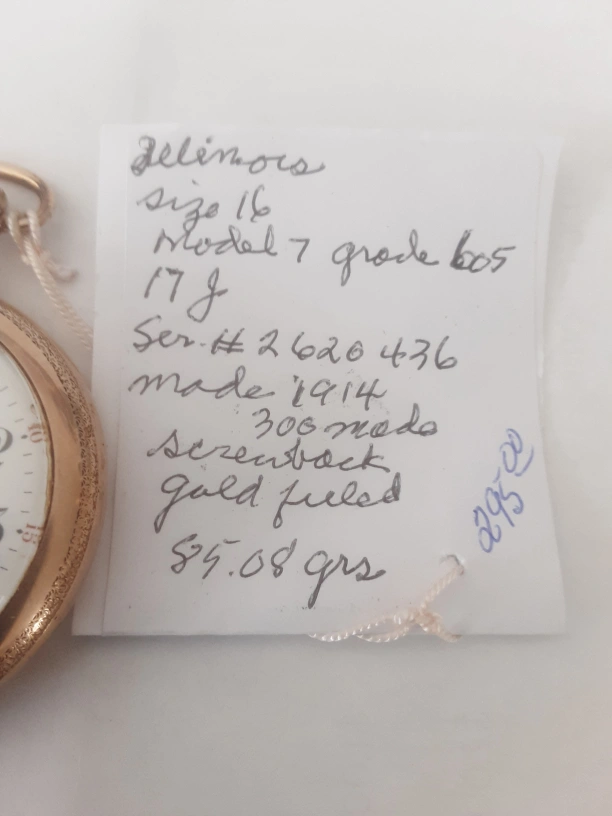 Illinois
size 16
Model 7 grade 605
17 J
Ser. # 2620436
made 1914
300 made
screwback
gold filled
85.08 grs
295.00
10
15